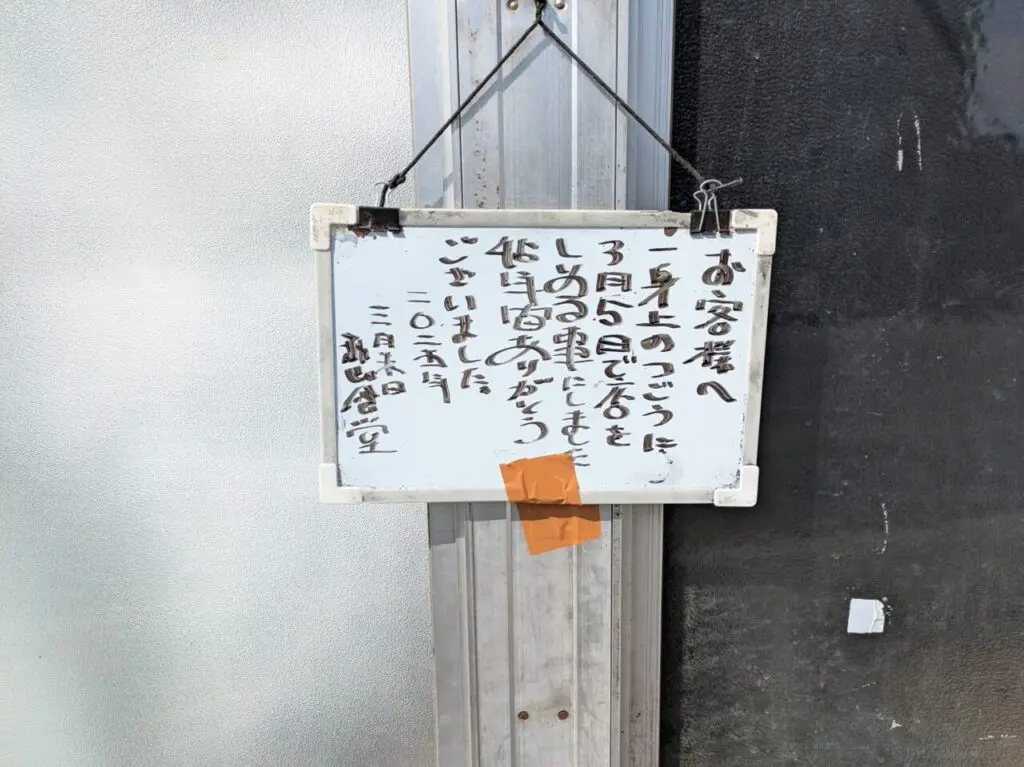 お客様へ
一身上のつごうに
3月5日で店を
しめる事にしました
年間ありがとう
ございました。
二〇二五年
三月末日
食堂